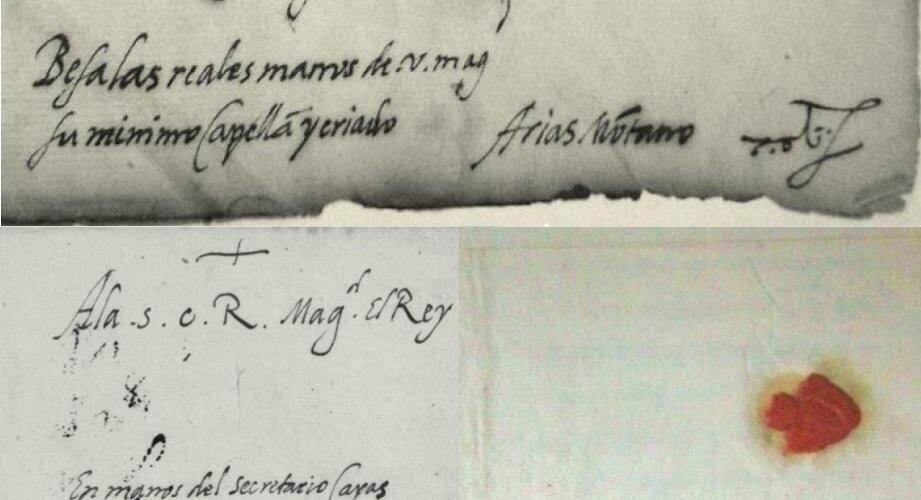 Besa las reales manos de .v. mag
su minimo Capellã y criado Arias Mõtano
A la .s. c. R. Magd. El Rey
En manos del secretario Çayas